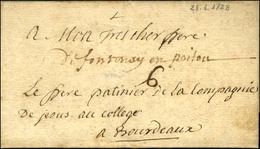 28.1.1728
A Mon tres cher frere
De fontenay en poitou
6
Le frere patinier de la Compagnie
de jesus au college
a Bourdeaux